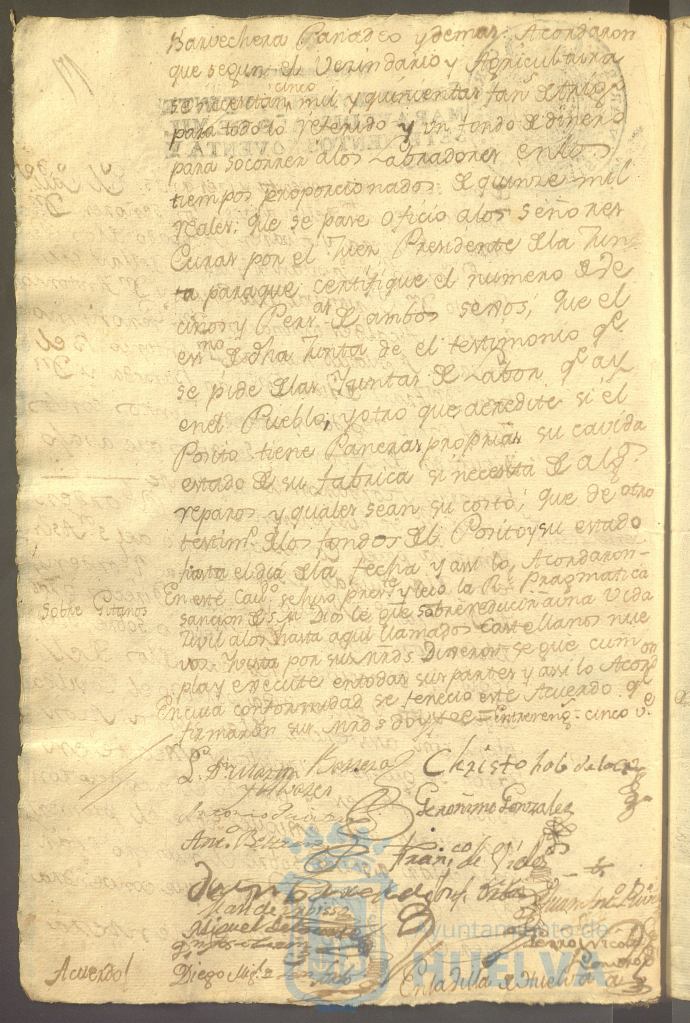 Barvechera Panadeo y demas: Acordaron
que segun el Vecindario y Agricultura
cinco
se necesitan mil y quinientas fan.s de trigo
para todo lo referido y un fondo de dinero
para socorrer a los Labradores en los
tiempos proporcionados de quinze mil
reales: que se pase Oficio a los Señores
Curas por el Juez Presidente de la Jun
ta para que certifique el numero de Ve
cinos y de ambos sexos; que el
es.no de dha Junta de el testimonio q.e
se pide de las Yuntas de Labor q.e ay
en el Pueblo, y otro que acredite si el
Posito tiene Paneras proprias su cavida
estado de su fabrica si necesita de alg.s
reparos y quales sean su costo; que de otro
testim.o de los fondos del Posito y su estado
hasta el dia de la fecha y assi lo Acordaron
Sobre Gitanos
En este Cav.do se hizo pres.te y leio la R.l Pragmatica
sancion de S. M. Dios le gue sobre reducir a una Vida
Civil a los hasta aqui llamados castellanos nue
vos Vista por sus Mrds Dixeron se que cum
pla y execute en todas sus partes y assi lo Acor
on
En cuia conformidad se fenecio este Acuerdo q.e
firmaron sus Mrds doy fee = Entrereng.s cinco v.e
Christobal de la
Geronimo Gonzales
Ant.o Beltran
Fran.co de
Miguel
Diego
Acuerdo!
En la Villa de Huelva
Ayuntamiento de
HUELVA